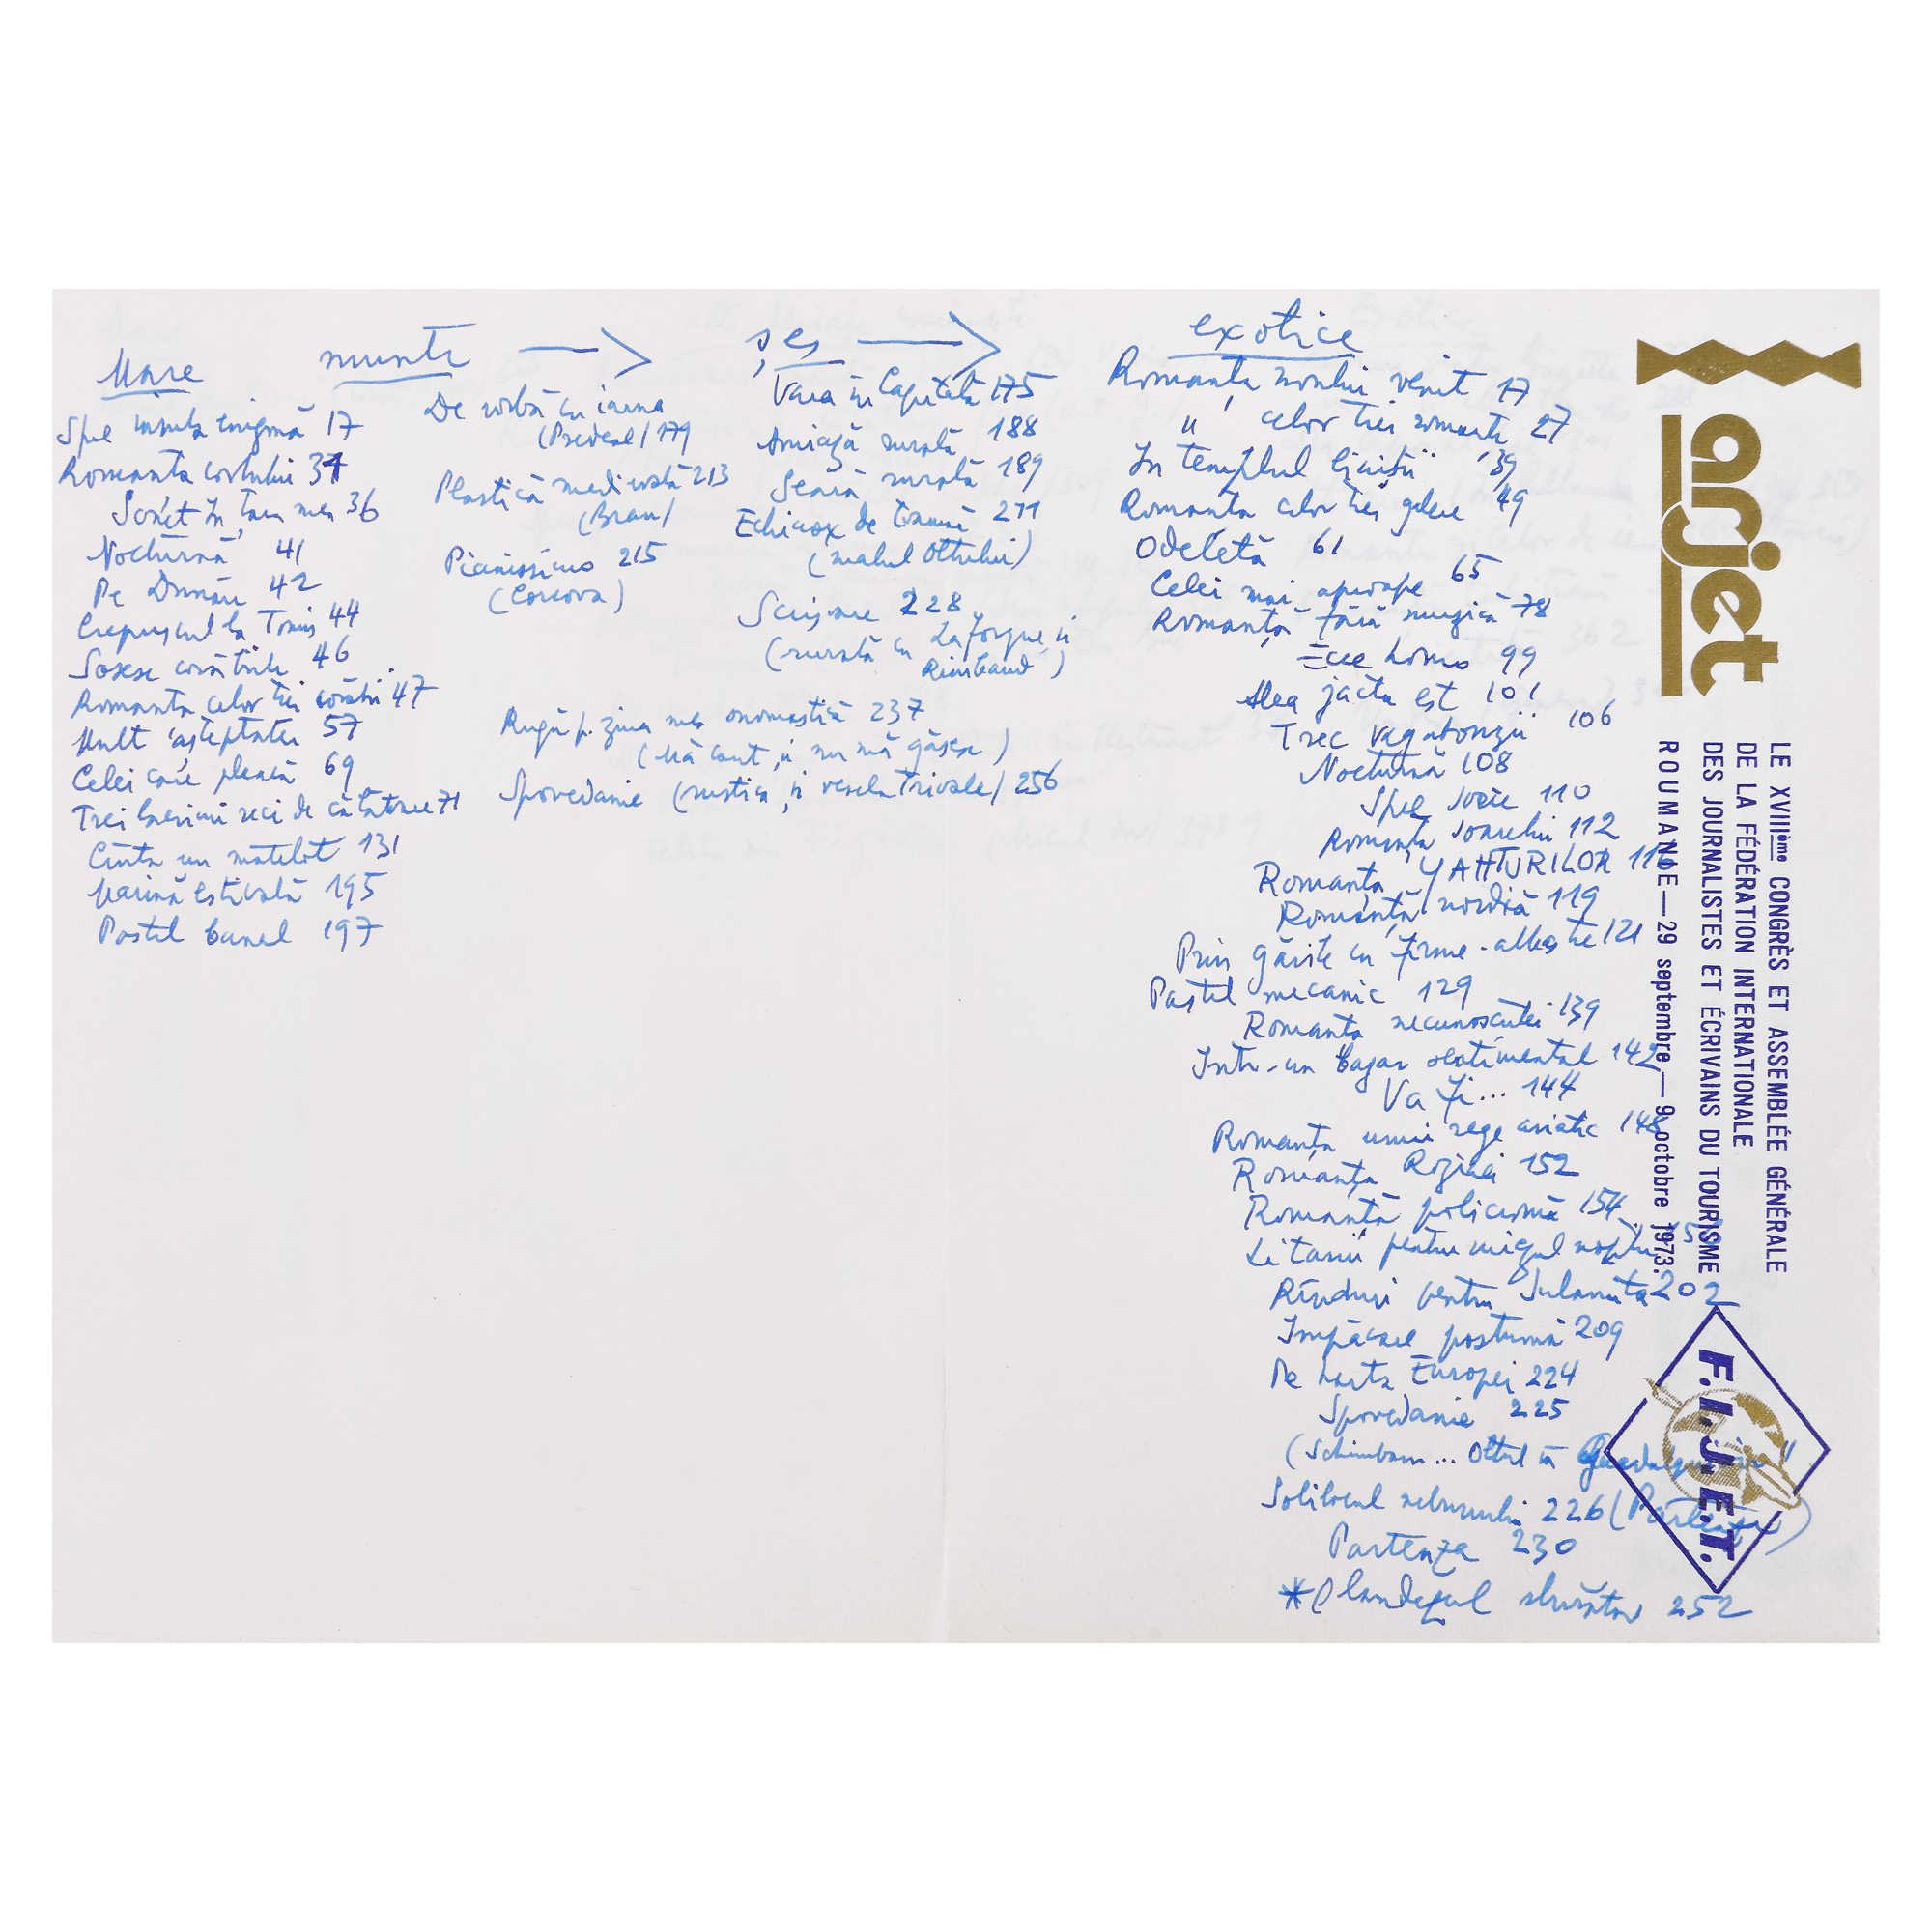 Mare
Spre insula enigmă 17
Romanta cortului 34
Sonet În țara mea 36
Nocturnă 41
Pe Dunăre 42
Crepuscul la Tomis 44
Sosesc corăbiile 46
Romanta celor trei corăbii 47
Mult așteptatei 57
Celei care pleacă 69
Trei lacrimi reci de călătoare 71
Cînta un matelot 131
Marină estivală 195
Pastel banal 197
munte
De vorbă cu iarna
(Predeal) 179
Plastică medievală 213
(Bran)
Pianissimo 215
(Corcova)
șes
Vara în Capitală 175
Amiază rurală 188
Seară rurală 189
Echinox de toamnă 211
(malul Oltului)
Scrisoare 228
(rurală cu Laforgue și
Rimbaud)
Rugă p. ziua mea onomastică 237
(Mă caut și nu mă găsesc)
Spovedanie (rustica și vesela Trivale) 256
exotice
Romanța noului venit 17
" celor trei romante 27
În templul liniștii 39
Romanta celor trei galere 49
Odeletă 61
Celei mai aproape 65
Romanță fără muzică 78
Ecce homo 99
Alea jacta est 101
Trec vagabonzii 106
Nocturnă 108
Spre Soare 110
Romanța Soarelui 112
Romanța YAHTURILOR 116
Romanță nordică 119
Prin gările cu firme-albastre 121
Pastel mecanic 129
Romanta necunoscutei 139
Într-un bazar sentimental 142
Va fi... 144
Romanța unui rege asiatic 148
Romanța Rozinei 152
Romanță policromă 154
Litanii pentru miezul nopții 156
Rînduri pentru Sulamita 202
Împăcare postumă 209
Pe harta Europei 224
Spovedanie 225
(Schimbam... Oltul în Guadalquivir"
Solilocul nebunului 226 (Partenza)
Partenza 230
* Olandezul sburător 252
arjet
LE XVIIIème CONGRÈS ET ASSEMBLÉE GÉNÉRALE
DE LA FÉDÉRATION INTERNATIONALE
DES JOURNALISTES ET ÉCRIVAINS DU TOURISME
ROUMANIE — 29 septembre — 9 octobre 1973.
F.I.J.E.T.